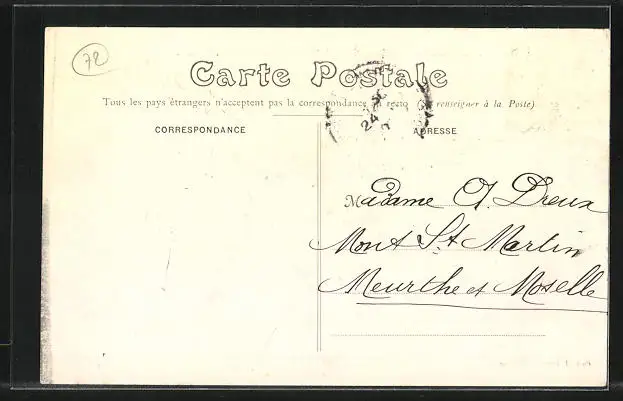 72
Carte Postale
Tous les pays étrangers n'acceptent pas la correspondance au recto (Se renseigner à la Poste)
24
CORRESPONDANCE
ADRESSE
Madame A. Dreux
Mont St Martin
Meurthe et Moselle